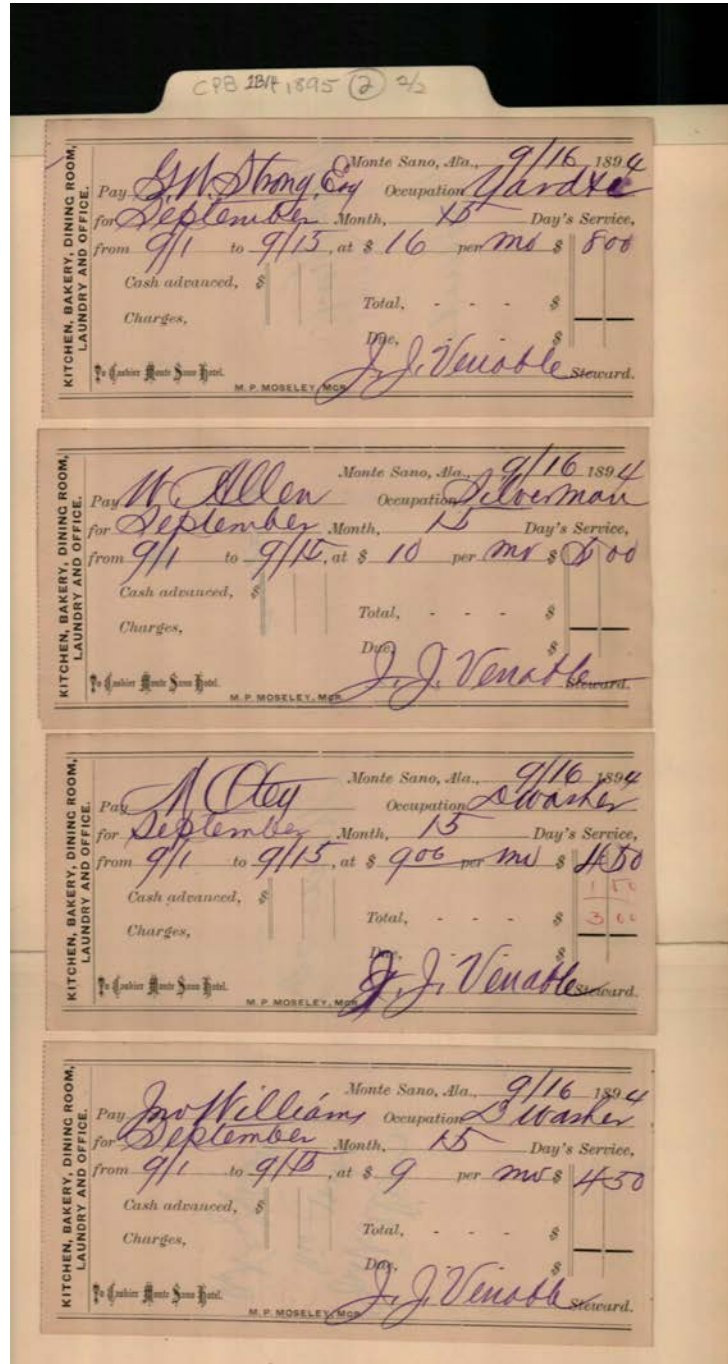 CPB 1894 1895 (2) 2/2
KITCHEN, BAKERY, DINING ROOM,
LAUNDRY AND OFFICE.
Monte Sano, Ala., 9/16 1894
Pay G.W. Strong, Esq Occupation
for September Month, 15 Day's Service,
from 9/1 to 9/15, at $ 16 per mo $ 8 00
Cash advanced, $
Total, - - - $
Charges,
Due, - - $
J. J. Venable Steward.
To Cashier Monte Sano Hotel.
M. P. MOSELEY, MGR.
KITCHEN, BAKERY, DINING ROOM,
LAUNDRY AND OFFICE.
Monte Sano, Ala., 9/16 1894
Pay W Allen Occupation Silverman
for September Month, 15 Day's Service,
from 9/1 to 9/15, at $ 10 per mo $ 5 00
Cash advanced, $
Total, - - - $
Charges,
Due, $
J. J. Venable Steward.
To Cashier Monte Sano Hotel.
M. P. MOSELEY, MGR.
KITCHEN, BAKERY, DINING ROOM,
LAUNDRY AND OFFICE.
Monte Sano, Ala., 9/16 1894
Pay N Otey Occupation D Washer
for September Month, 15 Day's Service,
from 9/1 to 9/15, at $ 9 00 per mo $ 4 50
Cash advanced, $ 1 50
Total, - - - $ 3 00
Charges,
Due, $
J. J. Venable Steward.
To Cashier Monte Sano Hotel.
M. P. MOSELEY, MGR.
KITCHEN, BAKERY, DINING ROOM,
LAUNDRY AND OFFICE.
Monte Sano, Ala., 9/16 1894
Pay Jno Williams Occupation D Washer
for September Month, 15 Day's Service,
from 9/1 to 9/15, at $ 9 per mo $ 4 50
Cash advanced, $
Total, - - - $
Charges,
Due, $
J. J. Venable Steward.
To Cashier Monte Sano Hotel.
M. P. MOSELEY, MGR.